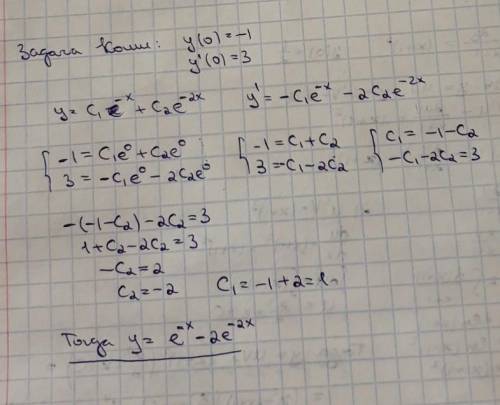 Задача Коши: y(0)=-1
y'(0)=3
y=C₁e⁻ˣ+C₂e⁻²ˣ y'=-C₁e⁻ˣ-2C₂e⁻²ˣ
{-1=C₁e⁰+C₂e⁰ {-1=C₁+C₂ {C₁=-1-C₂
3=-C₁e⁰-2C₂e⁰ 3=-C₁-2C₂ -C₁-2C₂=3
-(-1-C₂)-2C₂=3
1+C₂-2C₂=3
-C₂=2
C₂=-2 C₁=-1+2=1
Тогда y=e⁻ˣ-2e⁻²ˣ